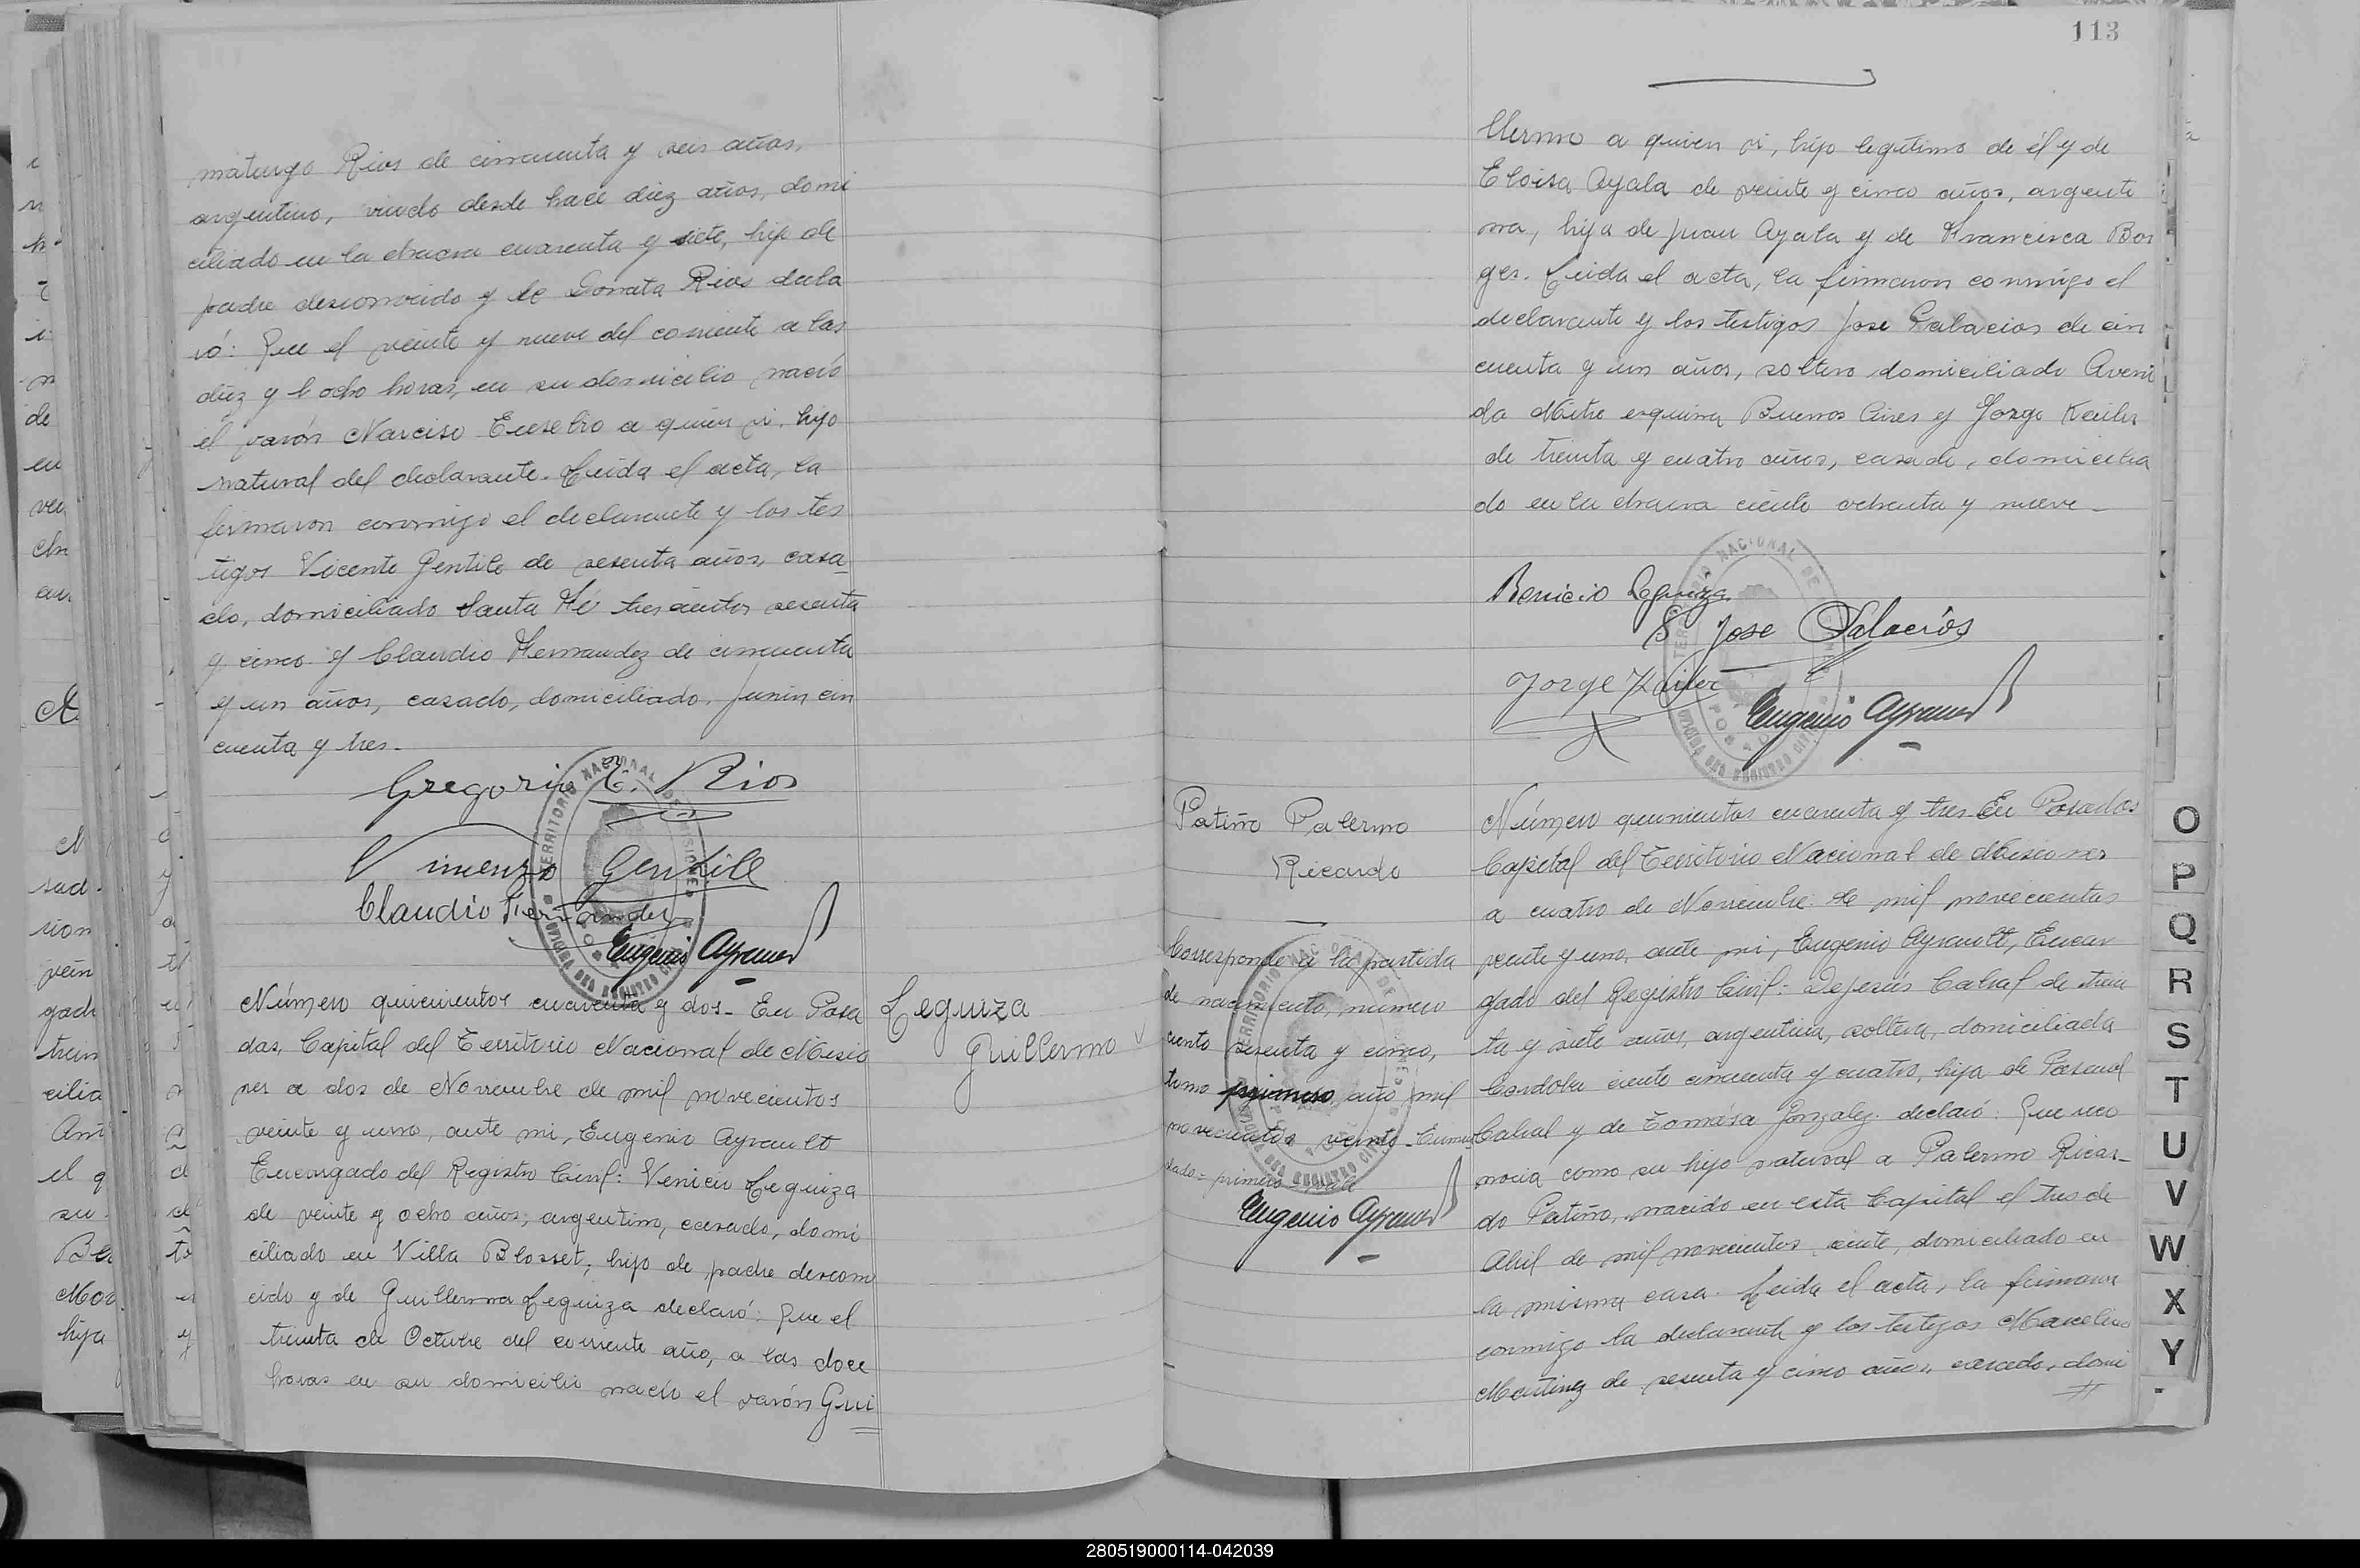 maturgo Rios de cincuenta y seis años,
argentino, viudo desde hace diez años, domi
ciliado en la chacra cuarenta y siete, hijo de
padre desconocido y de Donata Rios decla
ró: Que el veinte y nueve del corriente a las
diez y ocho horas, en su domicilio nació
el varón Narciso Eusebio a quien vi, hijo
natural del declarante. Leida el acta, la
firmaron conmigo el declarante y los tes
tigos Vicente Gentile de sesenta años, casa
do, domiciliado Santa Fé trescientos sesenta
y cinco y Claudio Hernandez de cincuenta
y un años, casado, domiciliado, Junin cin
cuenta y tres.
Gregorio T. Rios
Vincenzo Gentile
Claudio Hernandez
Eugenio Ayrault
Número quinientos cuarenta y dos. En Posa
das, Capital del Territorio Nacional de Misio
nes a dos de Noviembre de mil novecientos
veinte y uno, ante mi, Eugenio Ayrault
Encargado del Registro Civil: Venicio Leguiza
de veinte y ocho años, argentino, casado, domi
ciliado en Villa Blosset, hijo de padre descono
cido y de Guillerma Leguiza declaró: Que el
treinta de Octubre del corriente año, a las doce
horas en su domicilio nació el varón Gui
Leguiza
Guillermo
113
llermo a quien vi, hijo legítimo de él y de
Eloisa Ayala de veinte y cinco años, argenti
na, hija de Juan Ayala y de Francisca Bor
ges. Leida el acta, la firmaron conmigo el
declarante y los testigos Jose Palacios de cin
cuenta y un años, soltero domiciliado Aveni
da Mitre esquina Buenos Aires y Jorge Keiler
de treinta y cuatro años, casado, domicilia
do en la chacra ciento ochenta y nueve
Benicio Leguiza
Jose Palacios
Jorge
Eugenio Ayrault
Patiño Palermo
Ricardo
Corresponde a la partida
de nacimiento, número
ciento sesenta y cinco,
tomo primero, año mil
novecientos veinte. Enmen
dado = primero = vale
Eugenio Ayrault
Número quinientos cuarenta y tres. En Posadas
Capital del Territorio Nacional de Misiones
a cuatro de Noviembre de mil novecientos
veinte y uno, ante mi, Eugenio Ayrault, Encar
gado del Registro Civil: Dejesús Cabral de trein
ta y siete años, argentina, soltera, domiciliada
Cordoba ciento cincuenta y cuatro, hija de Pascual
Cabral y de Tomasa Gonzalez. declaró: Que reco
nocia como su hijo natural a Palermo Ricar_
do Patiño, nacido en esta Capital el tres de
Abril de mil novecientos veinte, domiciliado en
la misma casa. Leida el acta, la firmaron
conmigo la declarante y los testigos Marcelino
Martinez de sesenta y cinco años, casado, domi
O
P
Q
R
S
T
U
V
W
X
Y
280519000114-042039